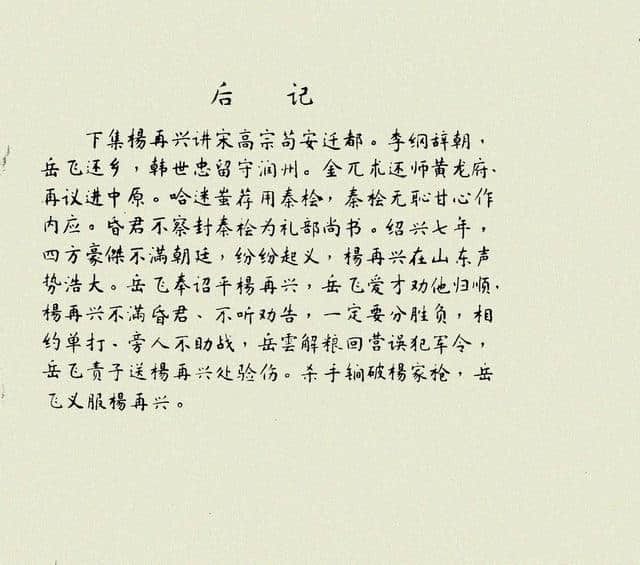 后 记
下集楊再兴讲宋高宗苟安迁都。李纲辞朝，
岳飞还乡，韩世忠留守润州。金兀朮还师黄龙府、
再议进中原。哈迷蚩荐用秦桧，秦桧无恥甘心作
内应。昏君不察封秦桧为礼部尚书。绍兴七年，
四方豪傑不滿朝廷，纷纷起义，楊再兴在山东声
势浩大。岳飞奉诏平楊再兴，岳飞爱才劝他归顺，
楊再兴不滿昏君、不听劝告，一定要分胜负，相
约单打、旁人不助战，岳雲解粮回营误犯军令，
岳飞责子送楊再兴处验伤。杀手锏破楊家枪，岳
飞义服楊再兴。